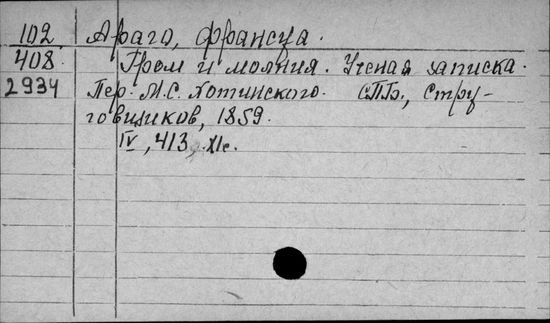 102 Араго, Франсуа.
408 Гром и молния. Ученая записка.
2934 Пер. М.С. Хотинского. СПБ., Стру-
говщиков, 1859.
IV, 413,